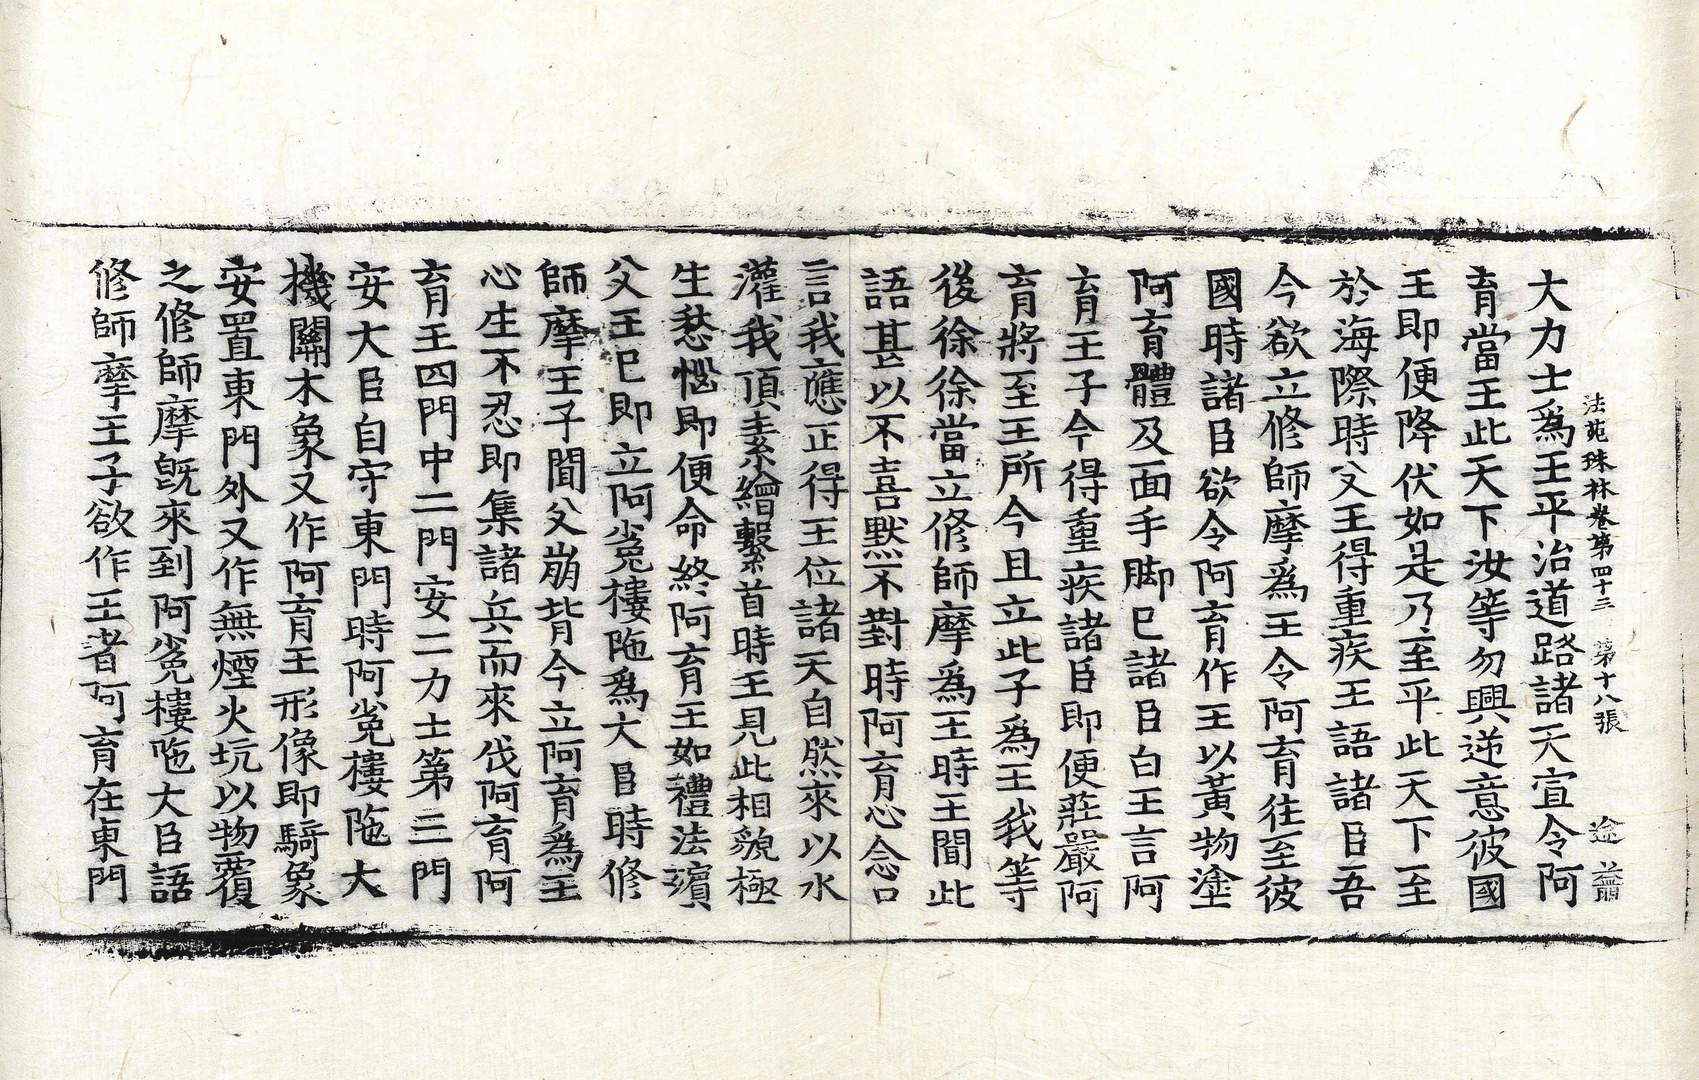 法苑珠林卷第四十三　第十八張　途
大力士爲王平治道路諸天宣令阿
育當王此天下汝等勿興逆意彼國
王即便降伏如是乃至平此天下至
於海際時父王得重疾王語諸臣吾
今欲立修師摩爲王令阿育往至彼
國時諸臣欲令阿育作王以黃物塗
阿育體及面手脚已諸臣白王言阿
育王子今得重疾諸臣即便莊嚴阿
育將至王所今且立此子爲王我等
後徐徐當立修師摩爲王時王聞此
語甚以不喜默不對時阿育心念口
言我應正得王位諸天自然來以水
灌我頂素繒繫首時王見此相貌極
生愁惱即便命終阿育王如禮法殯
父王已即立阿㝹樓陁爲大臣時修
師摩王子聞父崩背今立阿育爲王
心生不忍即集諸兵而來伐阿育阿
育王四門中二門安二力士第三門
安大臣自守東門時阿㝹樓陁大
機關木象又作阿育王形像即騎象
安置東門外又作無煙火坑以物覆
之修師摩旣來到阿㝹樓陁大臣語
修師摩王子欲作王者阿育在東門